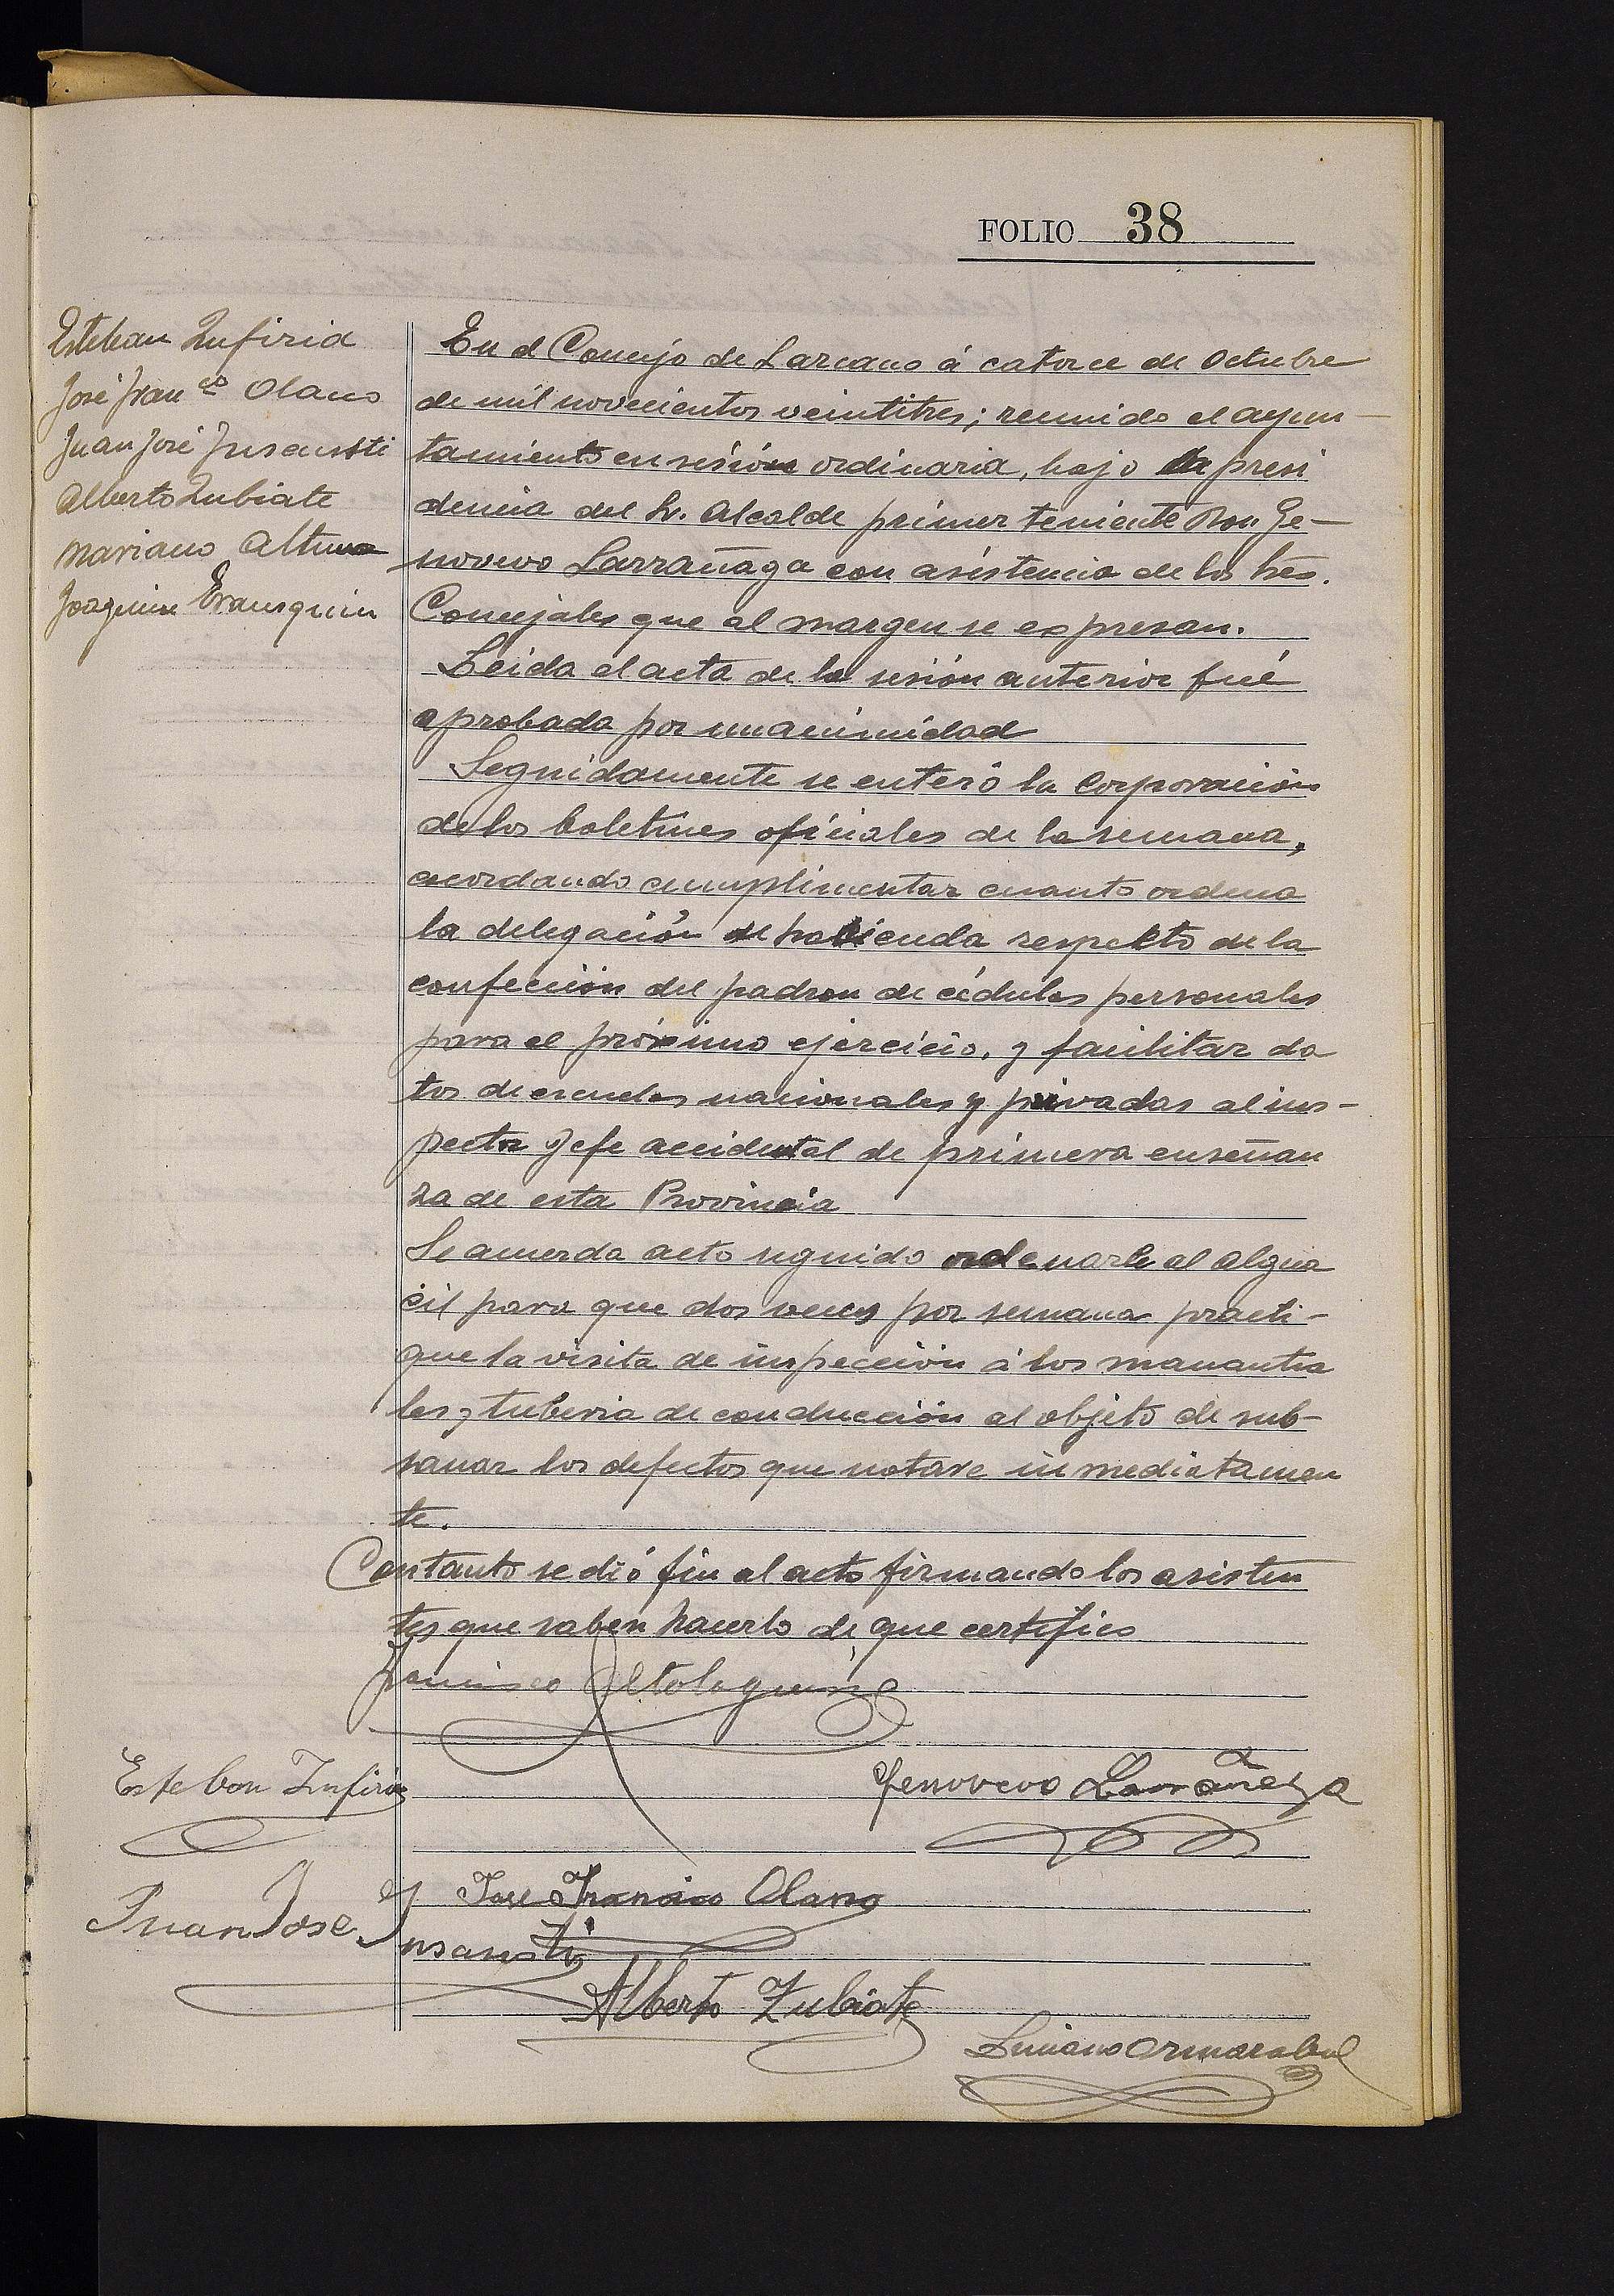 FOLIO 38
Esteban Zufiria
José Franco Olano
Juan José Insausti
Alberto Zubiate
Mariano Altuna
Joaquin Erausquin
En el Concejo de Lazcano á catorce de Octubre
de mil novecientos veintitres; reunido el ayun-
tamiento en sesión ordinaria, bajo la presi
dencia del Sr. Alcalde primer teniente Don Ge-
novevo Larrañaga con asistencia de los Sres.
Concejales que al margen se expresan.
Leida el acta de la sesión anterior fué
aprobada por unanimidad
Seguidamente se enteró la Corporación
de los boletines oficiales de la semana,
acordando cumplimentar cuanto ordena
la delegación de hacienda respecto de la
confección del padron de cédulas personales
para el próximo ejercicio, y facilitar da
tos de escuelas nacionales y privadas al ins-
pector Jefe accidental de primera enseñan
za de esta Provincia
Se acuerda acto seguido ordenarle al algua
cil para que dos veces por semana practi-
que la visita de inspección á los manantia
les y tuberia de conducción al objeto de sub-
sanar los defectos que notare inmediatamen
te.
Con tanto se dió fin al acto firmando los asisten
tes que saben hacerlo de que certifico
Francisco Altolaguirre
Esteban Zufiria
Genovevo Larrañaga
José Francisco Olano
Juan José Insausti
Alberto Zubiate
Luciano Armarabal